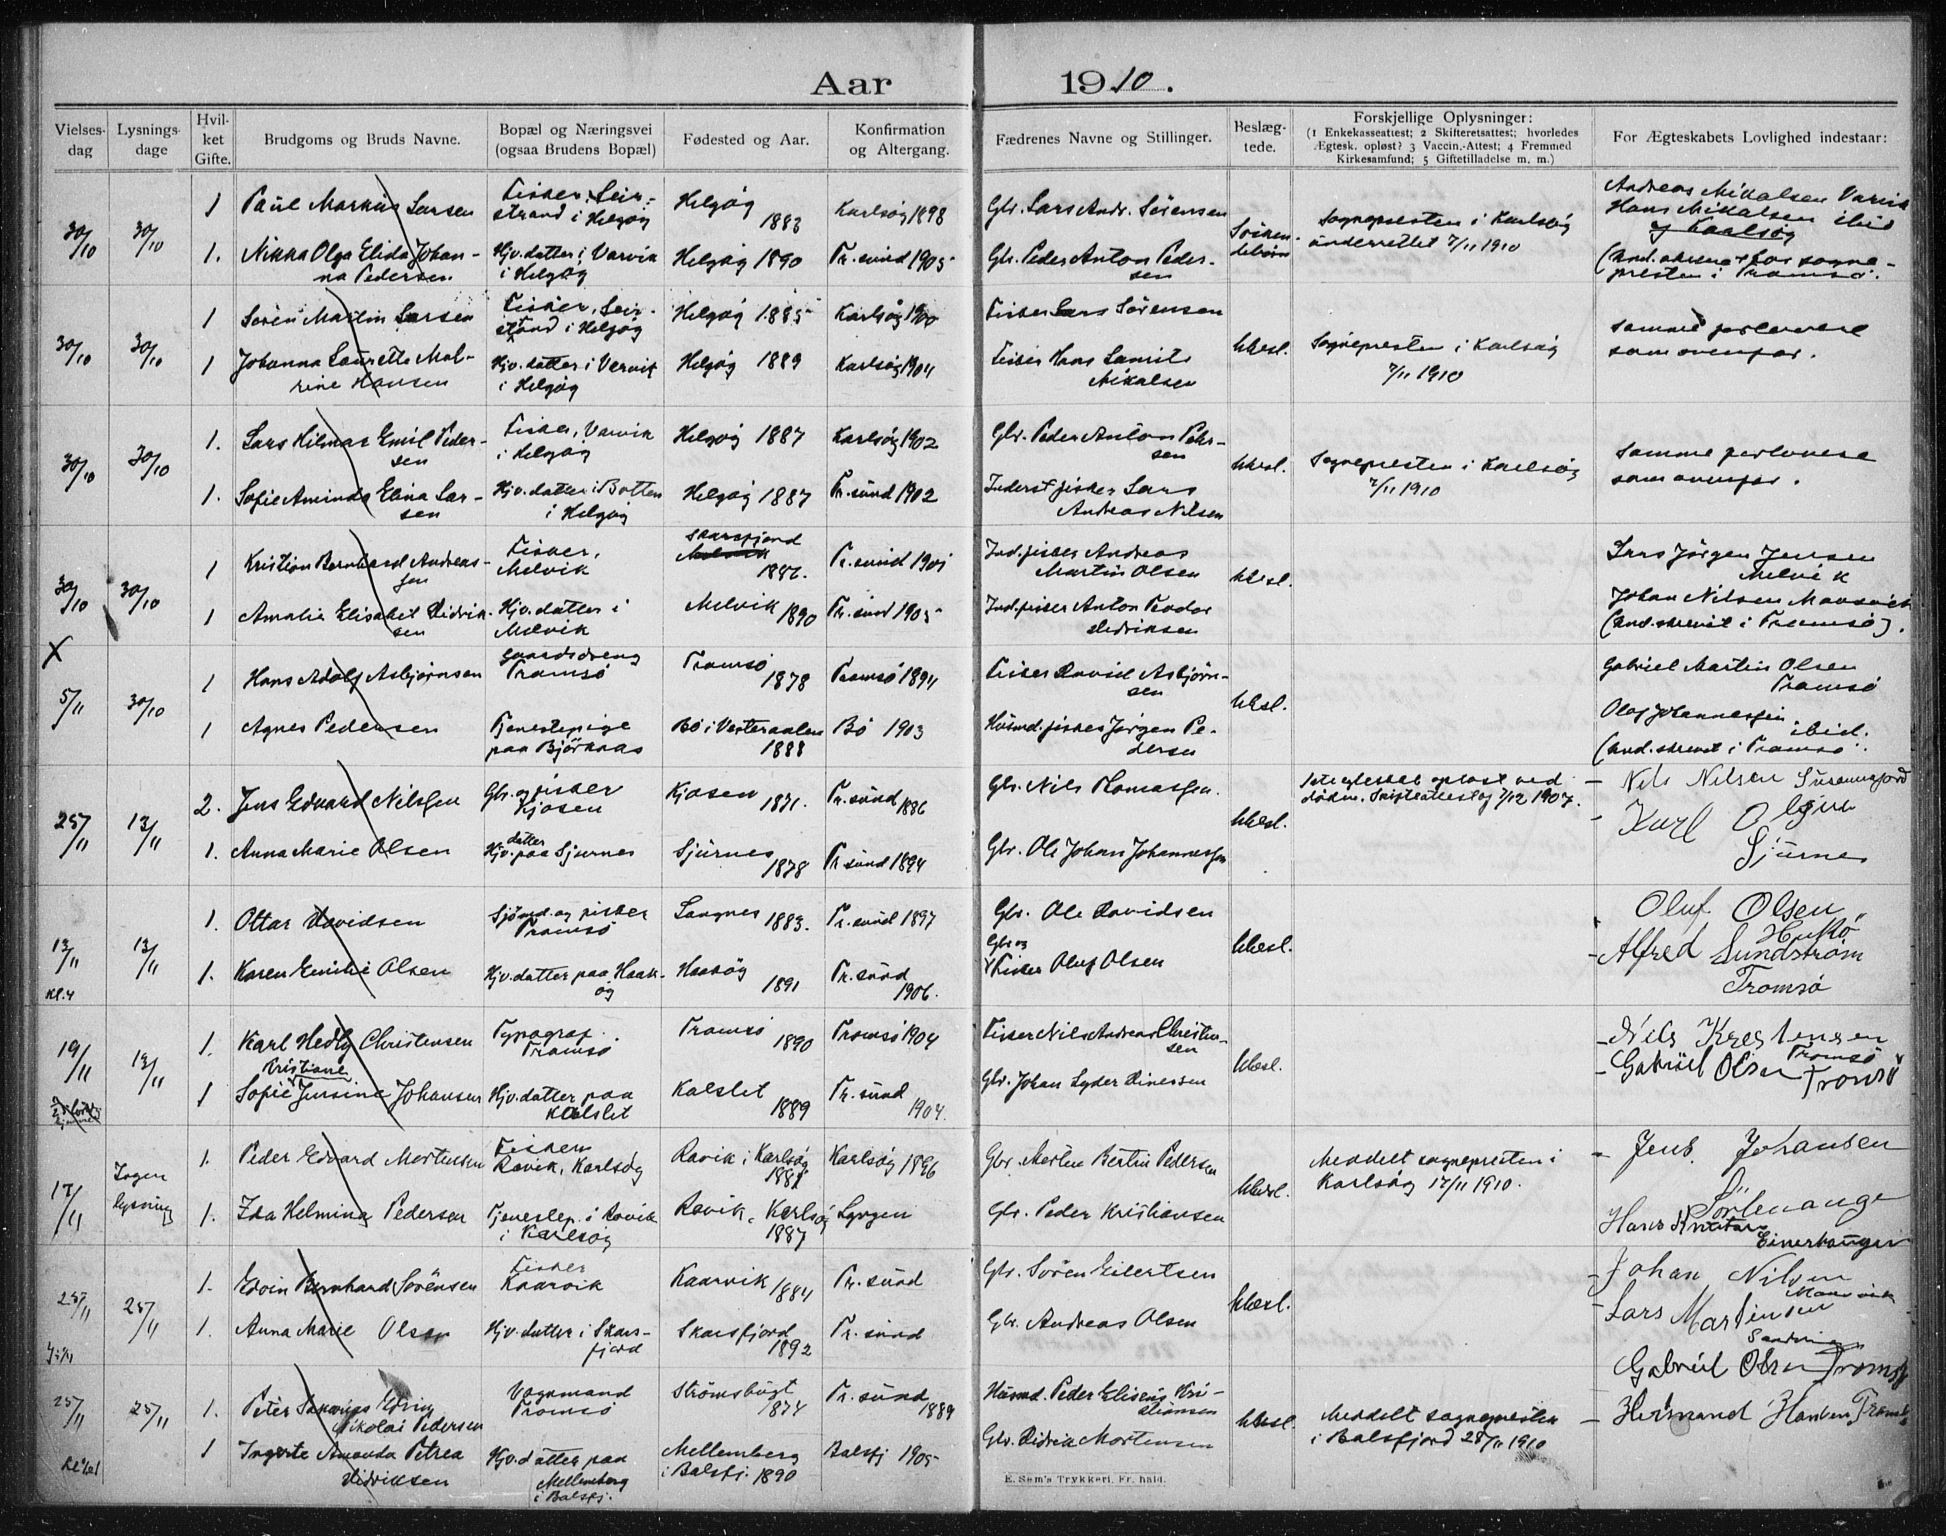 Aar 1910.
Vielses-dag
Lysnings-dage
Hvil-ket Gifte.
Brudgoms og Bruds Navne.
Bopæl og Næringsvei (ogsaa Brudens Bopæl)
Fødested og Aar.
Konfirmation og Altergang.
Fædrenes Navne og Stillinger.
Beslæg-tede.
Forskjellige Oplysninger:
(1 Enkekasseattest; 2 Skifteretsattest; hvorledes
Ægtesk. opløst? 3 Vaccin.-Attest; 4 Fremmed
Kirkesamfund; 5 Giftetilladelse m. m.)
For Ægteskabets Lovlighed indestaar:
30/10 30/10 1 Paul Markus Larsen Fisker, Seir-strand i Helgøy Helgøy 1883 Karlsøy 1898 Gbr. Lars Andr. Sørensen Søsken-debørn Sognepresten i Karlsøy underrettet 7/11 1910 Andreas Mikalsen Varvik
Hans Mikalsen ibid
af Karlsøy
1. Nikka Olga Elida Johan-na Pedersen Hjv. datter i Varvik i Helgøy Helgøy 1890 Tr.sund 1905 Gbr. Peder Anton Peder-sen (Und.skrevet for sogne-presten i Tromsø.
30/10 30/10 1 Søren Martin Larsen Fisker, Seir-strand i Helgøy Helgøy 1885 Karlsøy 1900 Fisker Lars Sørensen Ubesl. Sognepresten i Karlsøy 7/11 1910 Samme forlovere som ovenfor.
1 Johanna Lauretta Mal-rine Hansen Hjv. datter i Varvik i Helgøy Helgøy 1889 Karlsøy 1904 Fisker Hans Laurits Mikalsen
30/10 30/10 1. Lars Hilmar Emil Peder-sen Fisker, Varvik i Helgøy Helgøy 1887 Karlsøy 1902 Gbr. Peder Anton Peder-sen Ubesl. Sognepresten i Karlsøy 7/11 1910 Samme forlovere som ovenfor.
1. Sofie Aminda Elina Lar-sen Hjv. datter i Botten i Helgøy Helgøy 1887 Tr.sund 1902 Inderst fisker Lars Andreas Nilsen
30/10 30/10 1 Kristian Bernhard Andreas-sen Fisker, Melvik Skarsfjord 1886. Tr.sund 1901 Ind. fisker Andreas Martin Olsen Ubesl. Lars Jørgen Jensen Melvik
1 Amalie Elisabet Didrik-sen Hjv. datter i Melvik Melvik 1890 Tr.sund 1905 Ind. fisker Anton Teodor Didriksen Johan Nilsen Mausvik
(und.skrevet i Tromsø).
X
5/11 30/10 1 Hans Adolf Asbjørnsen Gaardsdreng Tromsø Tromsø 1878 Tromsø 1894 Fisker David Asbjørn-sen Ubesl. Gabriel Martin Olsen Tromsø
1 Agnes Pedersen Tjenestepige paa Bjørkaas Bø i Vesteraalen 1888 Bø 1903 Husmd. fisker Jørgen Pe-dersen Olaf Johannessen ibid.
(und.skrevet i Tromsø.
25/11 13/11 2. Jens Edvard Nilssen Gbr. og fisker Kjosen Kjosen 1871. Tr.sund 1886 Gbr. Nils Thomassen. Ubesl. 1ste egteskab opløst ved døden. Skifteattest af 7/12 1907. Nils Nilsen
1. Anna Marie Olsen Hjv. datter paa Sjurnes Sjurnes 1878 Tr.sund 1894 Gbr. Ole Johan Johannessen Karl Olsen Sjurnes
13/11 Kl.4 13/11 1. Ottar Davidsen Sjømd. og fisker Tromsø Langnes 1883. Tr.sund 1897 Gbr. Ole Davidsen Ubesl. Oluf Olsen,
1. Karen Emilie Olsen Hjv. datter paa Haak-øy Haakøy 1891 Tr.sund 1906. Gbr og Fisker Oluf Olsen Alfred Sundstrøm Tromsø
19/11 13/11 1. Karl Hedly Christensen Typograf. Tromsø Tromsø 1890 Tromsø 1904 Fisker Nils Andreas Christen-sen Ubesl. Nils Krestensen Tromsø
1 Sofie Kristiane Jensine Johansen Hjv. datter paa Kalslet Kalslet 1889 Tr.sund 1904. Gbr. Johan Lyder Dinessen Gabriel Olsen Tromsø
17/11 Ingen lysning 1. Peder Edvard Mortensen Fisker Ravik, Karlsøy Ravik i Karlsøy 1881 Karlsøy 1896 Gbr. Morten Bertin Pedersen Ubesl. Meddelt sognepresten i Karlsøy 17/11 1910. Jens Johansen
1. Ida Helmina Pedersen Tjenestep. i Ravik i Karlsøy Ravik, Karlsøy 1887 Lyngen Gbr. Peder Kristiansen Sørlenangen
Hans
25/11 25/11 1. Edvin Bernhard Sørensen Fisker Kaarvik Kaarvik 1884 Tr.sund Gbr. Søren Eilertsen Ubesl. Johan Nilsen
1. Anna Marie Olsen Hjv. datter i Skars-fjord Skarsfjord 1892 Tr.sund Gbr. Andreas Olsen Lars Martinsen
25/11 25/11 1. Peter Edvin Nikolai Pedersen Vognmand Tromsø Strømsbugt 1874 Tr.sund 1889 Husmd. Peder Elisæus Kri-stiansen Ubesl. Meddelt sognepresten i Balsfjord 28/11 1910 Gabriel Olsen Tromsø
1 Amanda Petrea Didriksen Hjv. datter paa Mellemberg i Balsfj. Mellemberg i Balsfj. 1890 Balsfj 1905 Gbr. Didrik Mortensen Hermand Hansen Tromsø
E. Sem's Trykkeri, Fr.hald.